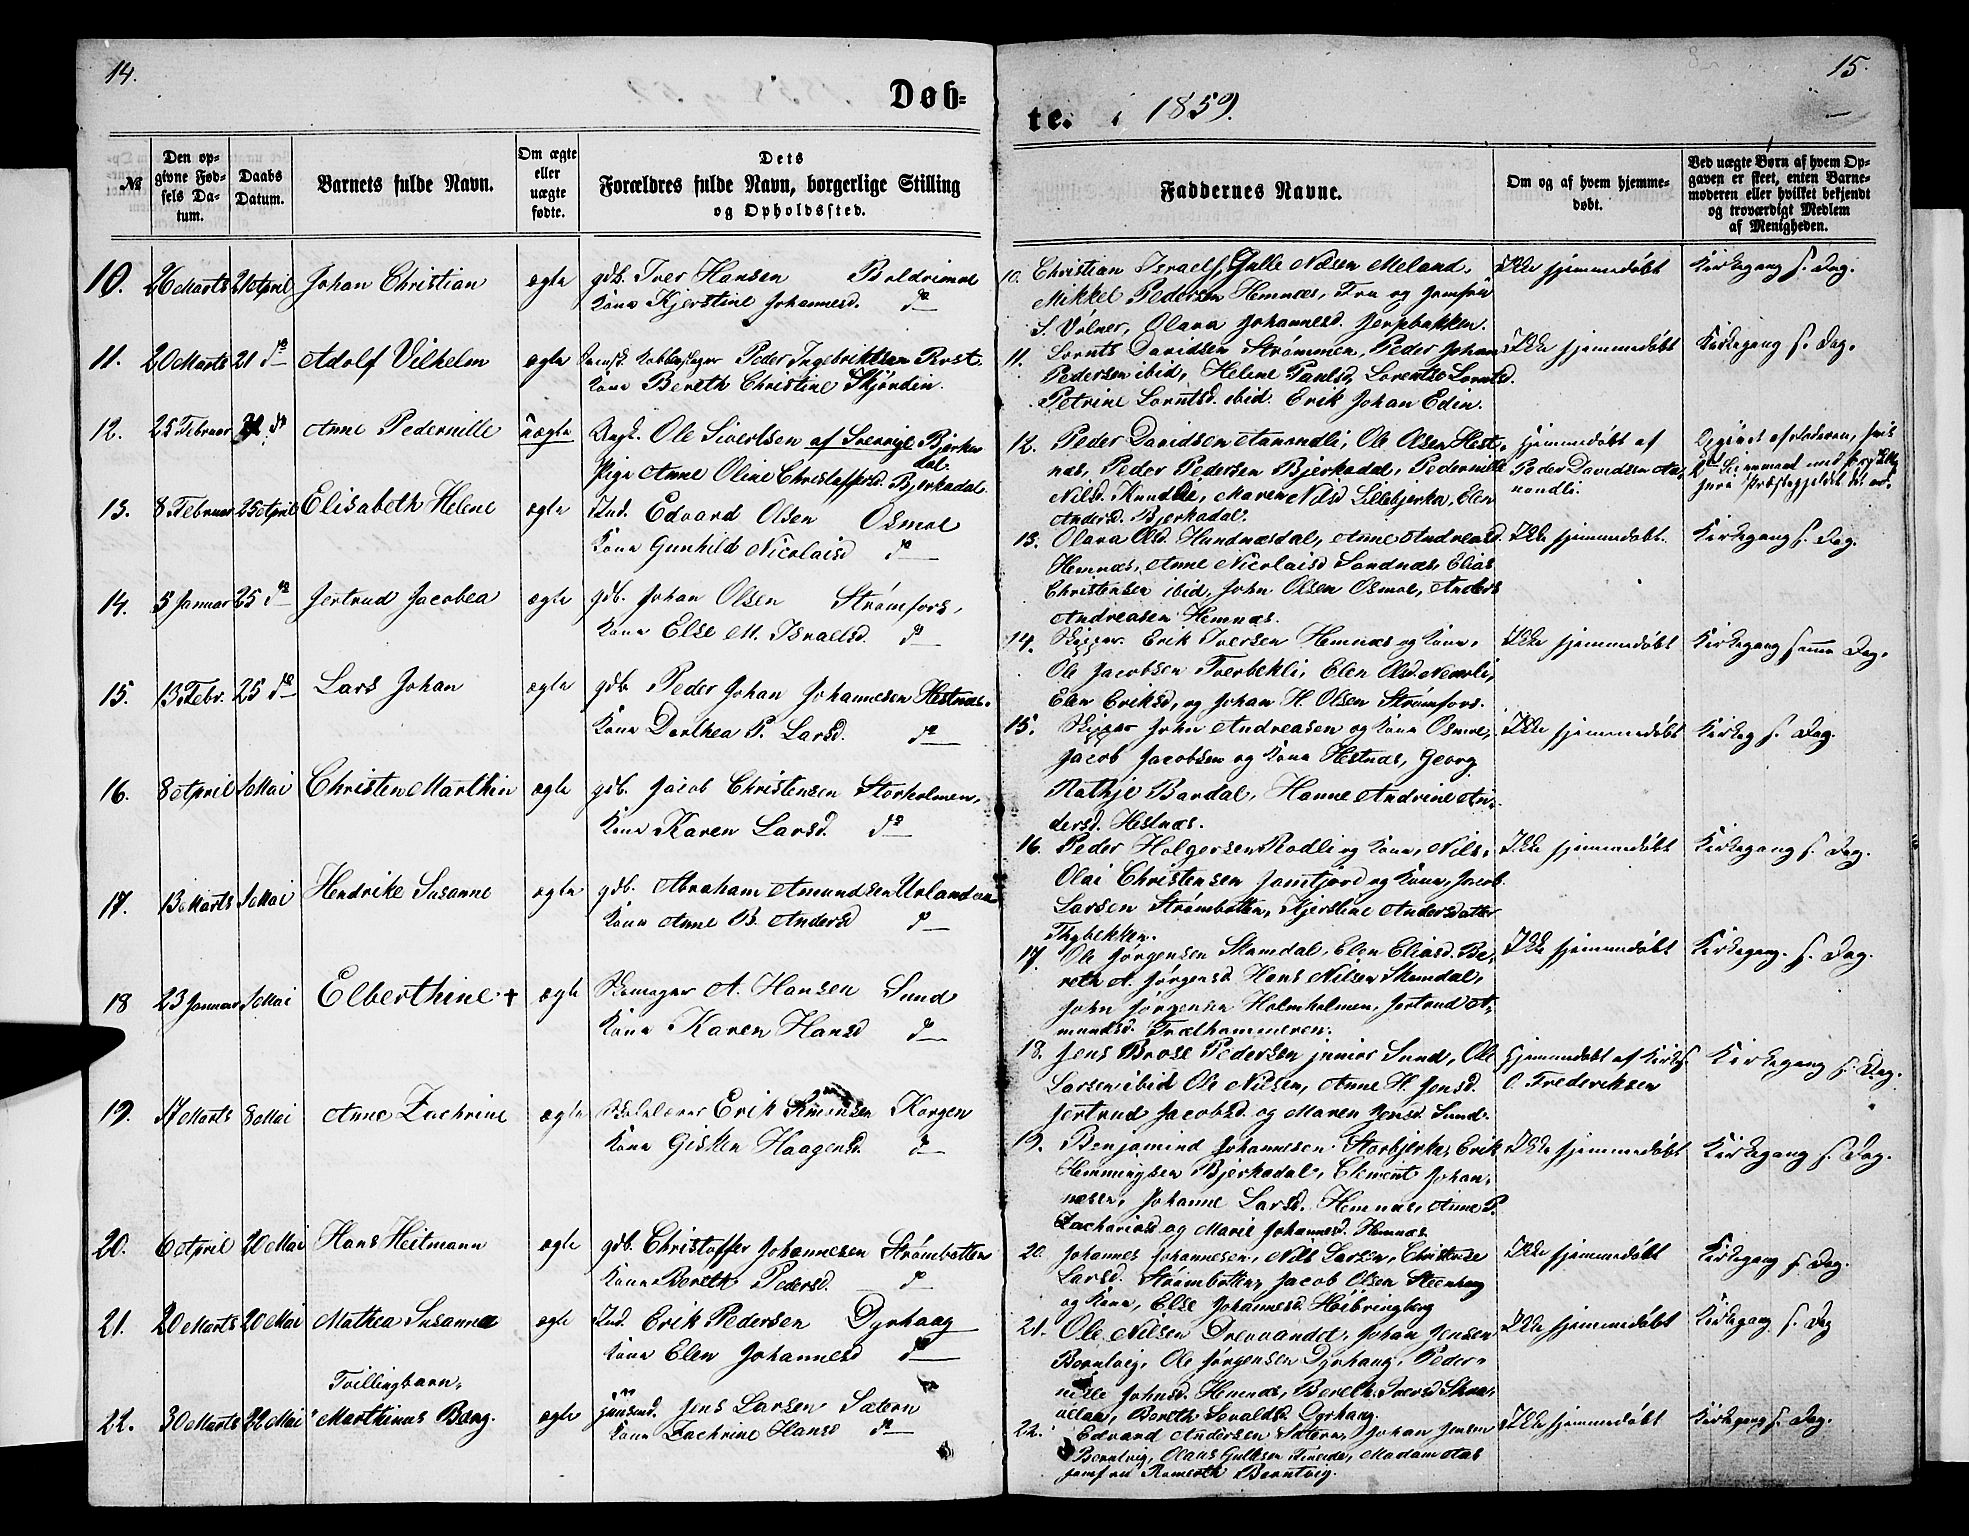 14.
Døb-
№
Den op-
givne Fød-
sels Da-
tum.
Daabs
Datum.
Barnets fulde Navn.
Om ægte
eller
uægte
fødte.
Dets
Forældres fulde Navn, borgerlige Stilling
og Opholdssted.
10. 26 Marts 21 April Johan Christian ægte gdb. Iver Hansen
Kone Kjerstine Johannesd. do
11. 20 Marts 21 do Adolf Vilhelm ægte Peder Ingebrigtsen Rost.
Kone Bereth Christine
12. 25 Februar do Anne Pedernille uægte Ungk. Ole Sivertsen af Sverrige Bjerka
dal.
Pige Anne Oline Christoffersd. Bjerkadal
13. 8 Februar 25 April Elisabeth Helene ægte Ind. Edvard Olsen Osmoe
Kone Gunhild Nicolaisd do
14. 5 Januar 25 do Jertrud Jacobea ægte gdb. Johan Olsen Strømfors,
Kone Else M. Israelsd. do
15. 13 Febr. 25 do Lars Johan ægte gdb. Peder Johan Johannesen Hestnæs.
Kone Dorthea P. Larsd. do
16. 8 April 1 Mai Christen Marthin ægte gdb. Jacob Christensen Storholmen,
Kone Karen Larsd. do
17. 13 Marts 1 Mai Hendrike Susanne ægte gdb. Abraham Amundsen
Kone Anne B. Andersd do
18 23 Januar 1 Mai Elberthine † ægte Skomager A. Hansen Sund
Kone Karen Hansd do
19. 17 Marts 8 Mai Anne Zachrine ægte Skolelærer Erik Simonsen Korgen
Kone Gisken Haagensd. do
20. 6 April 20 Mai Hans Heitmann ægte gdb. Christoffer Johannesen Strømbotten
Kone Bereth Pedersd. do
21. 20 Marts 20 Mai Mathea Susanna ægte Ind. Erik Pedersen Dyrhaug
Kone Elen Johannesd do
Tvillingbarn,
22. 30 Marts 22 Mai Marthinus Baag. ægte Jens Larsen Sætern
Kone Zachrine Hansd do
15.
te. i 1859.
Faddernes Navne.
Om og af hvem hjemme-
døbt.
Ved uægte Børn af hvem Op-
gaven er skeet, enten Barne-
moderen eller hvilket bekjendt
og troværdigt Medlem
af Menigheden.
10. Christian Israels, Gulle Nilsen Meland, Ikke hjemmedøbt Kirkegang s. Dag.
Mikkel Pedersen Hemnæs, Fru og Jomfru
S. Olava Johannesd. Jerpbakken.
11. Lornts Davidsen Strømmen, Peder Johan Ikke hjemmedøbt Kirkegang s. Dag.
Pedersen ibid, Helene Paulsd, Lorentse Lorntsd.
Petrine Lorntsd. ibid. Erik Johan Eden.
12. Peder Davidsen Anmondli, Ole Olsen Hest- hjemmedøbt af Opgivet af Faderen,
næs, Peder Pedersen Bjerkadal, Pedernille Peder Davidsen
Nilsd. Maren Nilsd Lillebjerka, Elen
Andersd. Bjerkadal.
13. Olava Olsd. Hundnæsdal, Anne Andreasd. Ikke hjemmedøbt. Kirkegang s. Dag.
Hemnæs, Anne Nicolaisd Sandnæs, Elias
Christensen ibid, John Olsen Osmoe, Anders
Andreasen Hemnæs.
14. Skipper Erik Iversen Hemnæs og Kone, Ikke hjemmedøbt Kirkegang samme Dag.
Ole Jacobsen Tverbekli, Elen Olsd
Elen Eriksd, og Johan H. Olsen Strømfors.
15. Skipper John Andreasen og Kone Osmoe, Ikke hjemmedøbt Kirkeg s. Dag.
Jacob Jacobsen og Kone Hestnæs, Georg
Nathje Bardal, Hanne Andrine An-
dersd. Hestnæs.
16 Peder Holgersen Rodli og Kone, Nils Ikke hjemmedøbt Kirkegang s. Dag.
Olai Christensen og Kone, Jacob
Larsen Strømbotten, Kjerstine Andersdatter
Thybekken.
17. Ole Jørgensen Skamdal, Elen Eliasd. Be- Ikke hjemmedøbt Kirkegang. s. Dag.
reth A. Jørgensd Hans Nilsen Skamdal,
John Jørgensen Holmholmen, Jertrud A-
mundsd. Trælhammeren.
18. Jens Brose Pedersen junior Sund, Ole hjemmedøbt af Kirkes. Kirkegang s. Dag.
Larsen ibid Ole Nilsen, Anne H. Jensd. O. Frederiksen
Jertrud Jacobsd. og Maren Jensd. Sund.
19. Benjamind Johannesen Storbjerka, Erik Ikke hjemmedøbt Kirkegang s. Dag.
Hemmingsen Bjerkadal, Clement Johan-
nesen, Johanne Larsd. Hemnæs, Anne P.
Zachariasd og Marie Johannesd. Hemnæs
20. Johannes Johannesen, Nils Larsen, Christense Ikke hjemmedøbt Kirkegang s. Dag.
Larsd. Strømbotten, Jacob Olsen Steenhaug
og Kone, Else Johannesd. Høibringberg
21. Ole Nilsen Drevvandet, Johan Jensen Ikke hjemmedøbt Kirkegang s. Dag
Borntvig, Ole Jørgensen Dyrhaug, Peder-
nille Johnsd. Hemnæs, Bereth Iversd
Bereth Dyrhaug.
22. Edvard Andersen Sætern, Johan Jensen Ikke hjemmedøbt Kirkegang s. Dag.
Borntvig, Olaus Gullesen Madam Aas
Jomfru Borntvig.